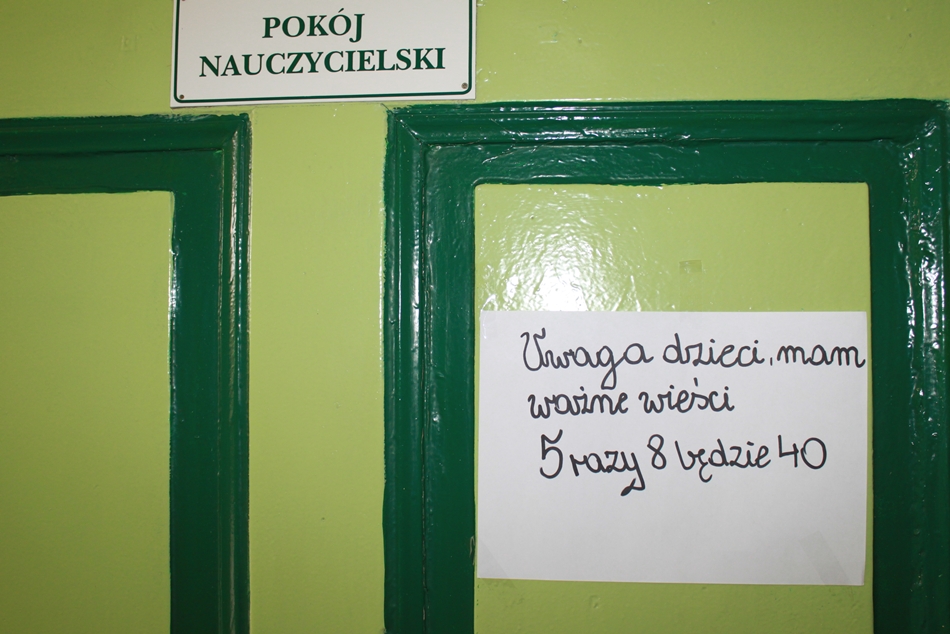 POKÓJ
NAUCZYCIELSKI
Uwaga dzieci, mam
ważne wieści
5 razy 8 będzie 40